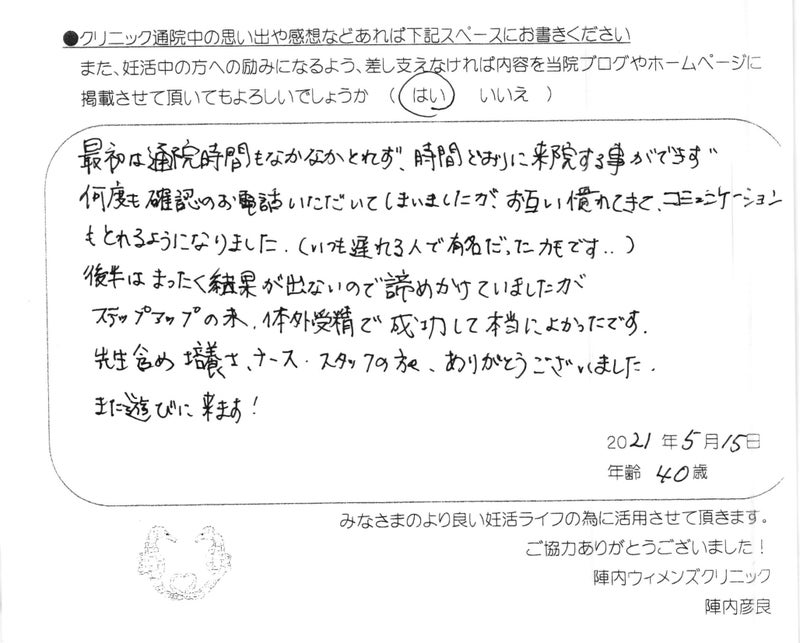 ●クリニック通院中の思い出や感想などあれば下記スペースにお書きください
また、妊活中の方への励みになるよう、差し支えなければ内容を当院ブログやホームページに
掲載させて頂いてもよろしいでしょうか （ はい　いいえ ）
最初は通院時間もなかなかとれず、時間どおりに来院する事ができず
何度も確認のお電話いただいてしまいましたが、お互い慣れてきて、コミュニケーション
もとれるようになりました。（いつも遅れる人で有名だったカモです‥）
後半はまったく結果が出ないので諦めかけていましたが
ステップアップの末、体外受精で成功して本当によかったです。
先生含め 培養士、ナース・スタッフの方々、ありがとうございました。
また遊びに来ます！
2021年5月15日
年齢 40歳
みなさまのより良い妊活ライフの為に活用させて頂きます。
ご協力ありがとうございました！
陣内ウィメンズクリニック
陣内彦良